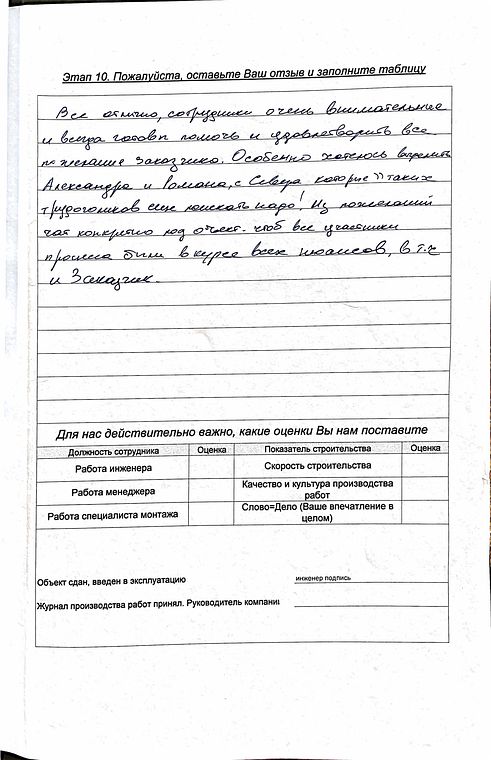 Этап 10. Пожалуйста, оставьте Ваш отзыв и заполните таблицу
Все отлично, сотрудники очень внимательные
и всегда готовы помочь и удовлетворить все
пожелание Заказчика. Особенно хотелось выделить
Александра и Романа, с Севера которые )) таких
трудоголиков еще поискать надо! Из пожеланий
чат конкретно под объект. чтоб все участники
процесса были в курсе всех нюансов, в т.ч
и Заказчик.
Для нас действительно важно, какие оценки Вы нам поставите
Должность сотрудника Оценка Показатель строительства Оценка
Работа инженера Скорость строительства
Работа менеджера Качество и культура производства
работ
Работа специалиста монтажа Слово=Дело (Ваше впечатление в
целом)
Объект сдан, введен в эксплуатацию инженер подпись
Журнал производства работ принял. Руководитель компани